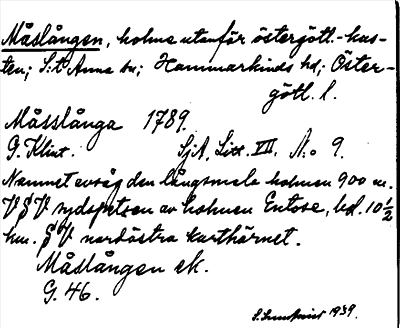 Måslången, holme utanför östergötl.-kus-
ten; S:t Anna sn; Hammarkinds hd; Öster-
götl. l.
Måsslånga 1789.
G. Klint. SjA, Litt. VII, N:o 9.
Namnet avsåg den långsmala holmen 900 m.
V § V sydspetsen av holmen Entose, bel. 10 1/2
hm. § V nordöstra karthörnet.
Måslången ek.
G. 46.
1939.